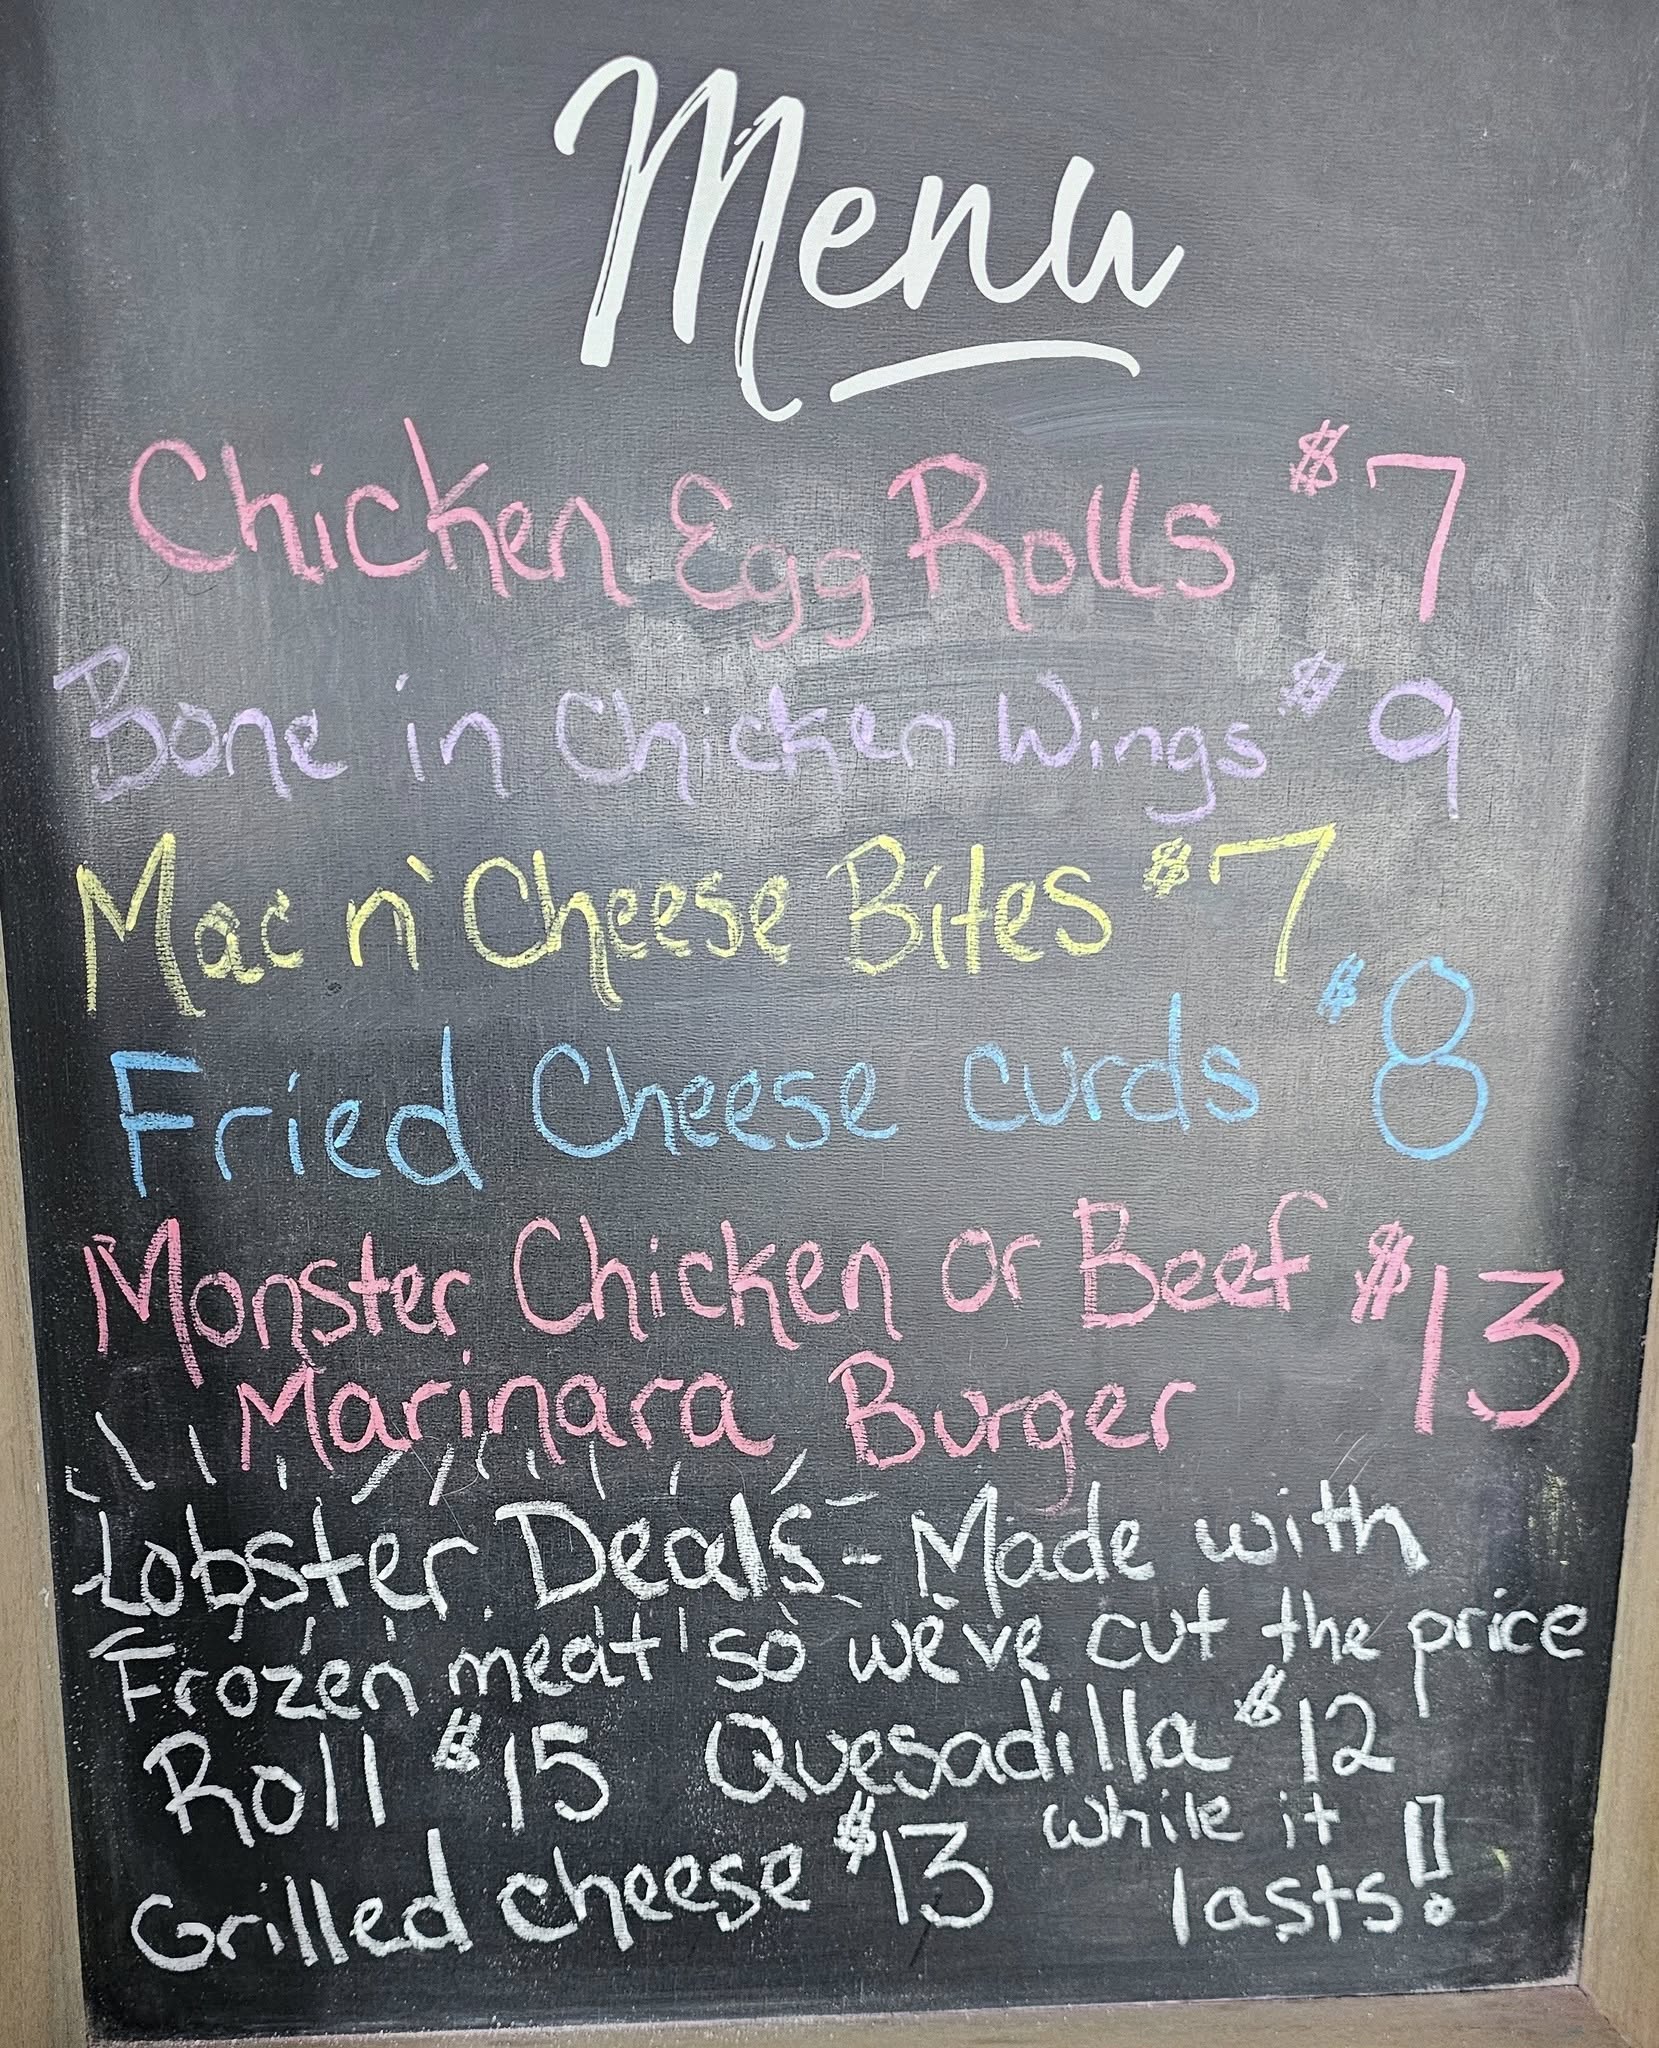 Menu
Chicken Egg Rolls $7
Bone in Chicken Wings $9
Mac n' Cheese Bites $7
Fried Cheese curds $8
Monster Chicken or Beef $13
Marinara Burger
Lobster Deals - Made with
Frozen meat so we've cut the price
Roll $15 Quesadilla $12
Grilled cheese $13 while it
lasts!